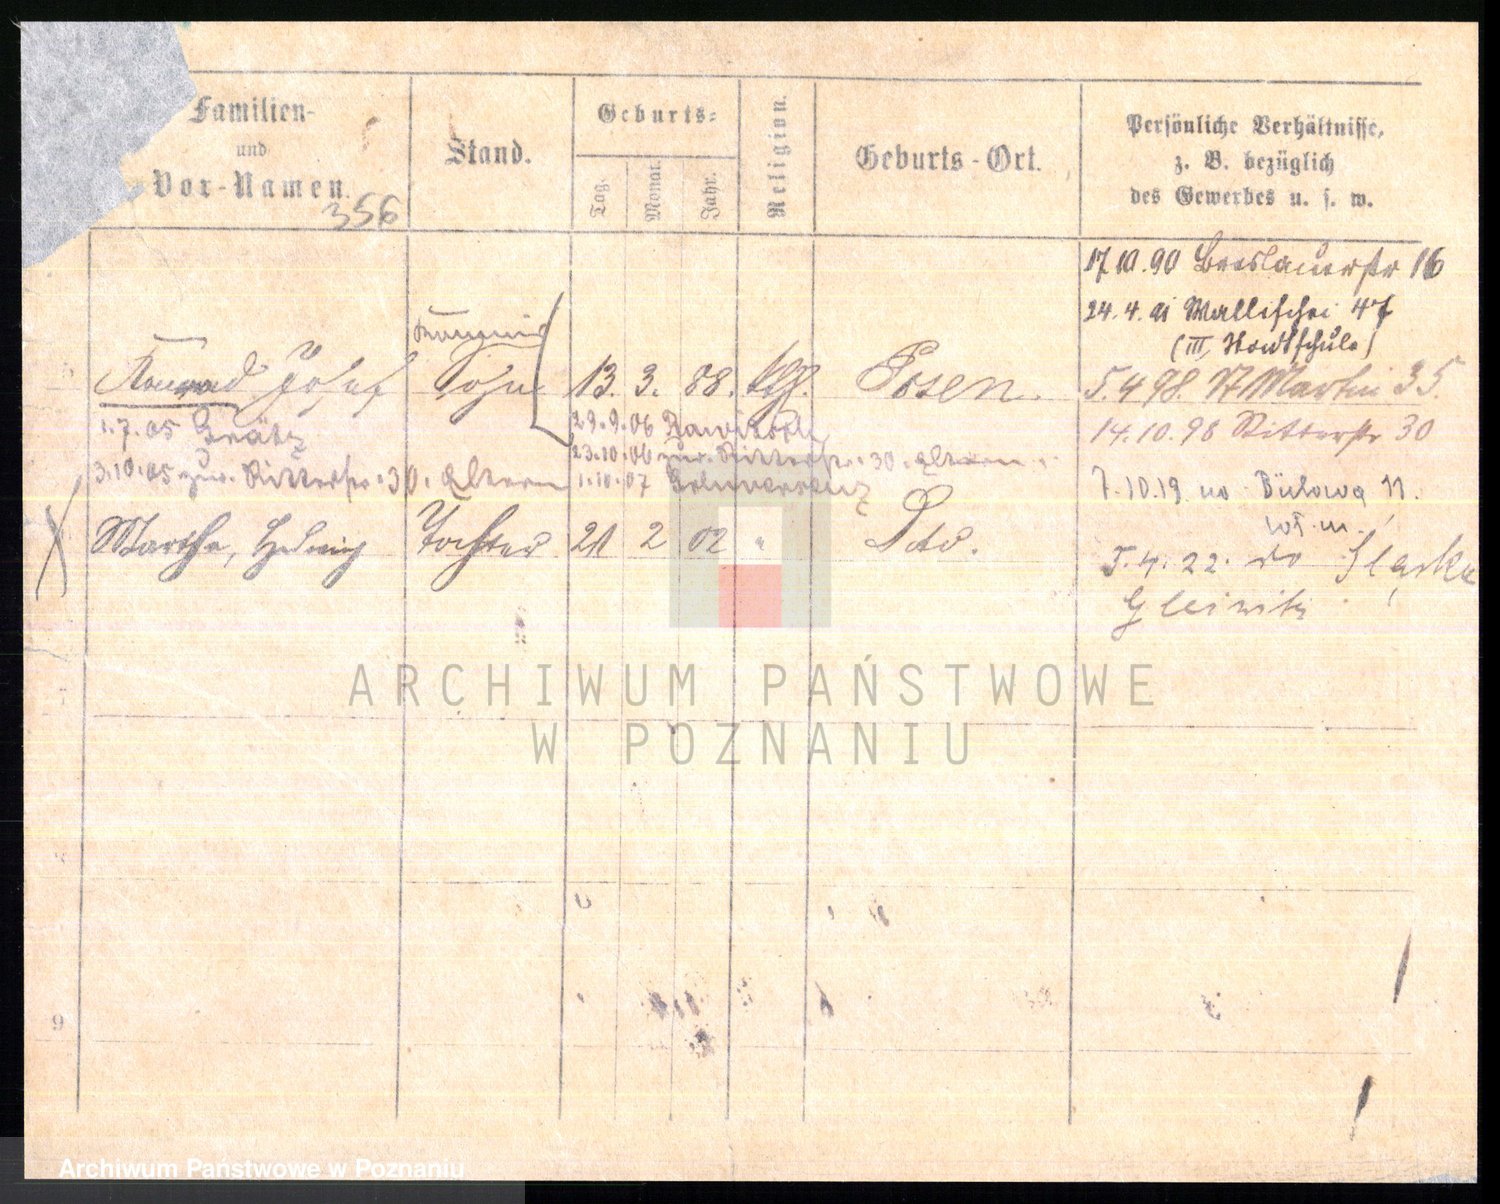 Familien-
und
Vor-Namen.
356
Stand.
Geburts-
Tag.
Monat.
Jahr.
Religion.
Geburts-Ort.
Persönliche Verhältnisse,
z. B. bezüglich
des Gewerbes u. s. w.
17.10.90 Breslauerstr 16
24.4.91 Wallischei 47
(III, Stadtschule)
Konrad Josef Sohn 13. 3. 88. Posen.
5.4.98. St Martin 35.
1.7.05 Grätz
29.9.06 Rawitsch
14.10.98 Ritterstr 30
23.10.06 zur. Ritterstr. 30. Eltern
3.10.05 zur. Ritterstr. 30. Eltern
1.10.07
7.10.19 na Bülowa 11.
Martha, Hedwig Tochter 21 2 02 " Dto.
5.4.22. do
Gleiwitz
9
ARCHIWUM PAŃSTWOWE
W POZNANIU
Archiwum Państwowe w Poznaniu